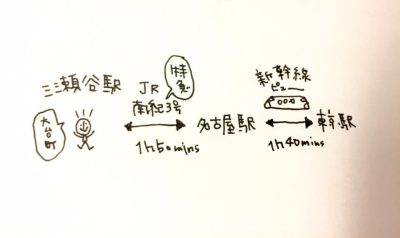 三瀬谷駅
大台町
JR
特急
南紀3号
1h50mins
名古屋駅
新幹線
ピュー
1h40mins
駅